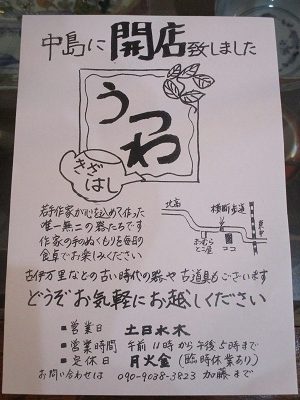 中島に開店致しました
うつわ
きざはし
若手作家が心を込めて作った
唯一無二の器たちです
作家の手のぬくもりを毎日の
食卓でお楽しみください
横断歩道
おむら
とこ屋
ココ
古伊万里などの古い時代の器や古道具もございます
どうぞお気軽にお越しください
■営業日 土日水木
■営業時間 午前11時から午後5時まで
■定休日 月火金(臨時休業あり)
お問い合わせは 090-9038-3823 加藤まで